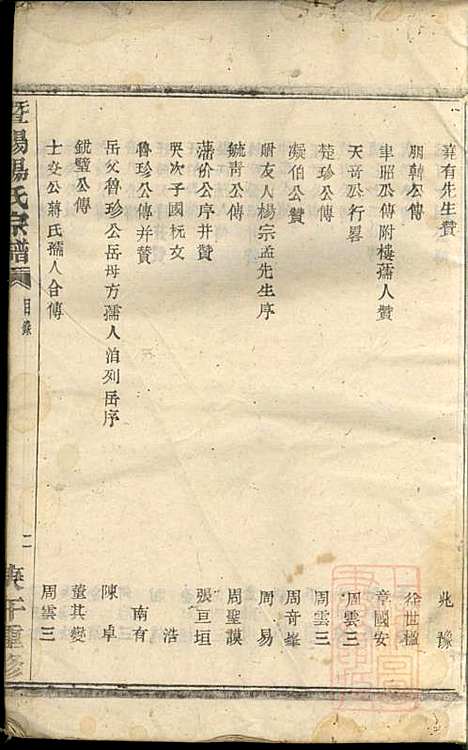 堯有先生贊 兆豫
朋韓公傳 徐世楹
聿昭公傳附樓孺人贊 章國安
天音公行畧 周雲三
楚珍公傳 周雲三
凝伯公贊 周奇峯
附友人楊宗孟先生序 周易
毓青公傳 周聖謨
藩价公序并贊 張亘垣
哭次子國梡文 浩
魯珍公傳并贊 南有
岳父魯珍公岳母方孺人洎列岳序 陳卓
銑璧公傳 董其燮
士安公蔣氏孺人合傳 周雲三
暨陽楊氏宗譜 目錄 二 庚午重修